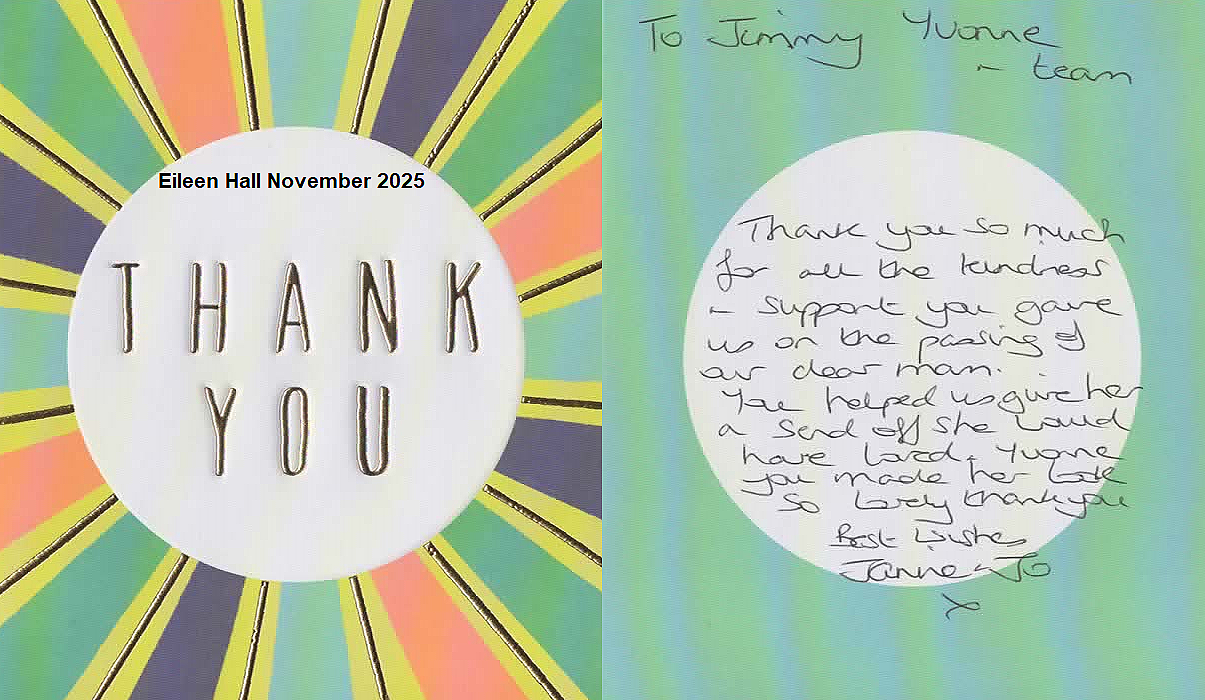 Eileen Hall November 2025
THANK
YOU
To Jimmy Yvonne
~ team
Thank you so much
for all the kindness
~ support you gave
us on the passing of
our dear mam.
You helped us give her
a send off she would
have loved. Yvonne
you made her look
so lovely thankyou
Best wishes
Janne ~ Jo
x